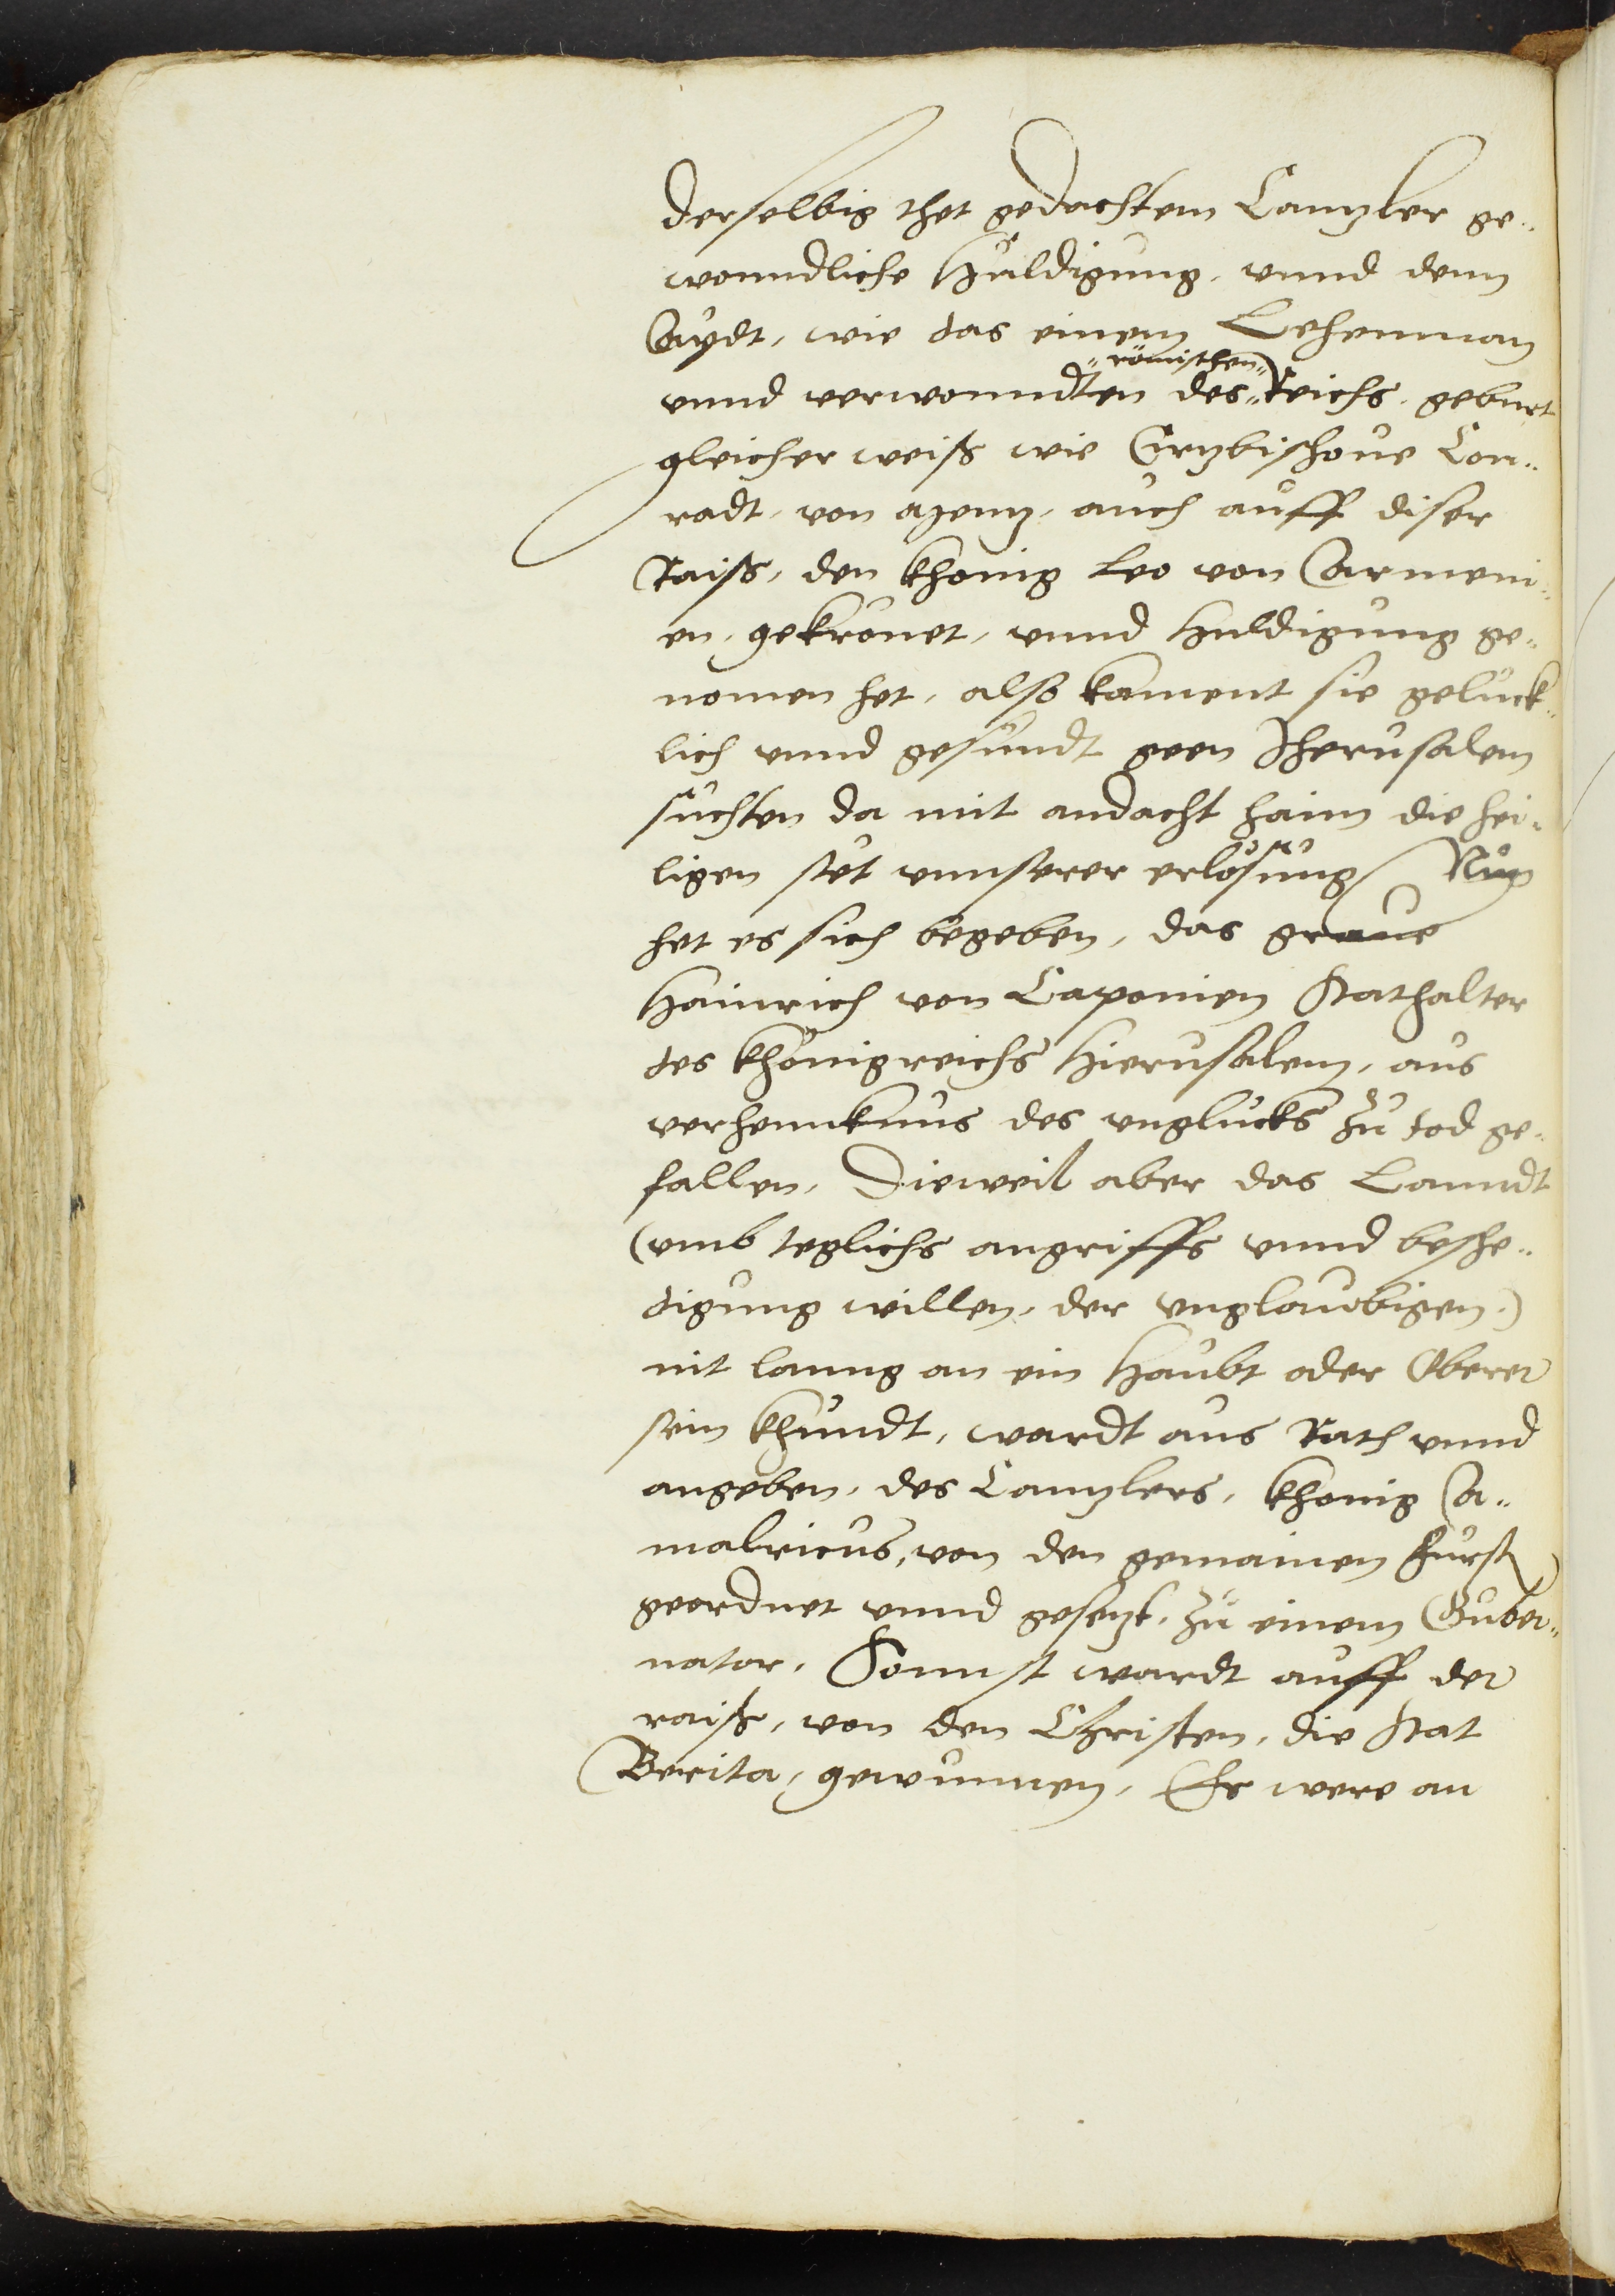 derselbig thet gedachtem Canzler ge-
wonndliche Huldigung, vnnd denn
Aydt, wie das einem Lehenman
vnnd verwonndten des römischen Reichs, geburt
gleicher weiß wie Ertzbischoue Con-
radt, von Mentz, auch auff diser
Raiß, den khonig Leo von Armeni-
en, gekronet, vnnd Huldigung ge-
nomen het, also kament sie geluck-
lich vnnd gesundt geen Jherusalem
suchten da mit andacht haim die hei-
ligen stet vnnserer erlösung / Nun
het es sich begeben, das graue
Hainrich von Caponien Stathalter
des khönigreichs Hierusalem, aus
verhennknus des vnglucks zu tod ge-
fallen, Dieweil aber das Lanndt
(vmb teglichs angriffs vnnd besche-
digung willen, der vnglaubigen,)
nit lanng an ein Haubt oder Oberer
sein khundt, wardt aus Rath vnnd
angeben, des Canzlers, khonig A-
malricus, von den gemainen fürst
geordnet vnnd gesetzt, zu einem Guber-
nator, Sonnst wardt auff der
raiß, von den Christen, die Stat
Berita, gewunnen, Er were an